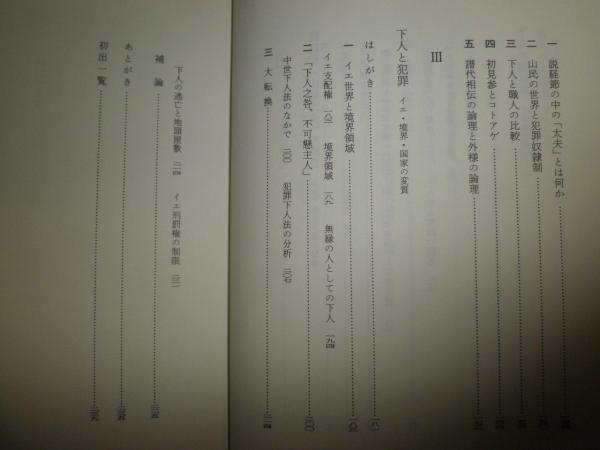 一 説経節の中の「太夫」とは何か
二 山民の世界と犯罪奴隷制
三 下人と職人の比較
四 初見参とコトアゲ
五 譜代相伝の論理と外様の論理
Ⅲ
下人と犯罪 イエ・境界・国家の変質
はしがき 一八〇
一 イエ世界と境界領域 一八三
イエ支配権 一八三 境界領域 一八九 無縁の人としての下人 一九四
二 「下人之咎、不可懸主人」 二〇〇
中世下人法のなかで 二〇〇 犯罪下人法の分析 二〇七
三 大転換 二一四
下人の逃亡と地頭屋敷 二一四 イエ刑罰権の制限 二二一
補論
あとがき
初出一覧